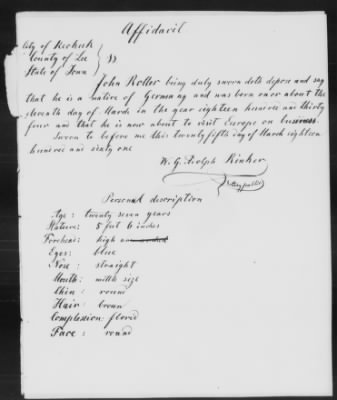 Affidavit
City of Keokuk
County of Lee } SS
State of Iowa
John Roller being duly sworn doth depose and say
that he is a native of Germany and was born on or about the
eleventh day of March in the year eighteen hundred and thirty
four and that he is now about to visit Europe on business.
Sworn to before me this twenty fifth day of March eighteen
hundred and sixty one
W. G. Adolph Rinker
Notary public
Personal description
Age: twenty seven years
Stature: 5 feet 6 inches
Forehead: high
Eyes: blue
Nose: straight
Mouth: middle size
Chin: round
Hair: brown
Complexion: flored
Face: round